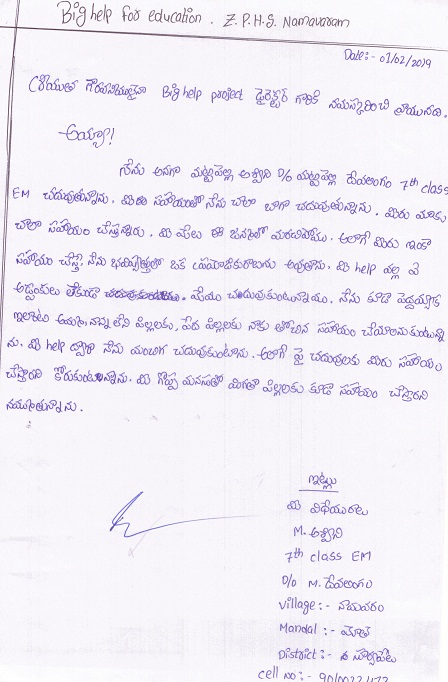 Big help for education. Z.P.H.S. Namavaram
Date:- 01/02/2019
శ్రీయుత గౌరవనీయులైన Big help project డైరెక్టర్ గారికి నమస్కరించి వ్రాయునది.
అయ్యా!
నేను అనగా మట్టపెల్లి అశ్విని D/o మట్టపెల్లి దేవలింగం 7th class
EM చదువుతున్నాను. మీరు సహాయంతో నేను చాలా బాగా చదువుతున్నాను. మీరు మాకు
చాలా సహాయం చేస్తున్నారు. మీ మేలు ఈ జన్మలో మరచిపోము. అలాగే మీరు ఇంకా
సహాయం చేస్తే నేను భవిష్యత్తులో ఒక ప్రయోజకురాలుగు అవుతాను. మీ help వల్ల ఏ
అడ్డంకులు లేకుండా మేము చదువుకుంటున్నాము. నేను కూడా పెద్దయ్యాక
ఇలాంటి అమ్మా, నాన్న లేని పిల్లలకు, పేద పిల్లలకు నాకు తోచిన సహాయం చేయాలనుకుంటున్నా
ను. మీ help ద్వారా నేను మంచిగ చదువుకుంటాను. అలాగే పై చదువులకు మీరు సహాయం
చేస్తారని కోరుకుంటున్నాను. మీ గొప్ప మనసుతో మిగతా పిల్లలకు కూడా సహాయం చేస్తారని
నమ్ముతున్నాను.
ఇట్లు
మీ విధేయురాలు
M. అశ్విని
7th class EM
D/o M. దేవలింగం
Village:- నామవరం
Mandal :- మోతే
District:- సూర్యాపేట
cell no:-